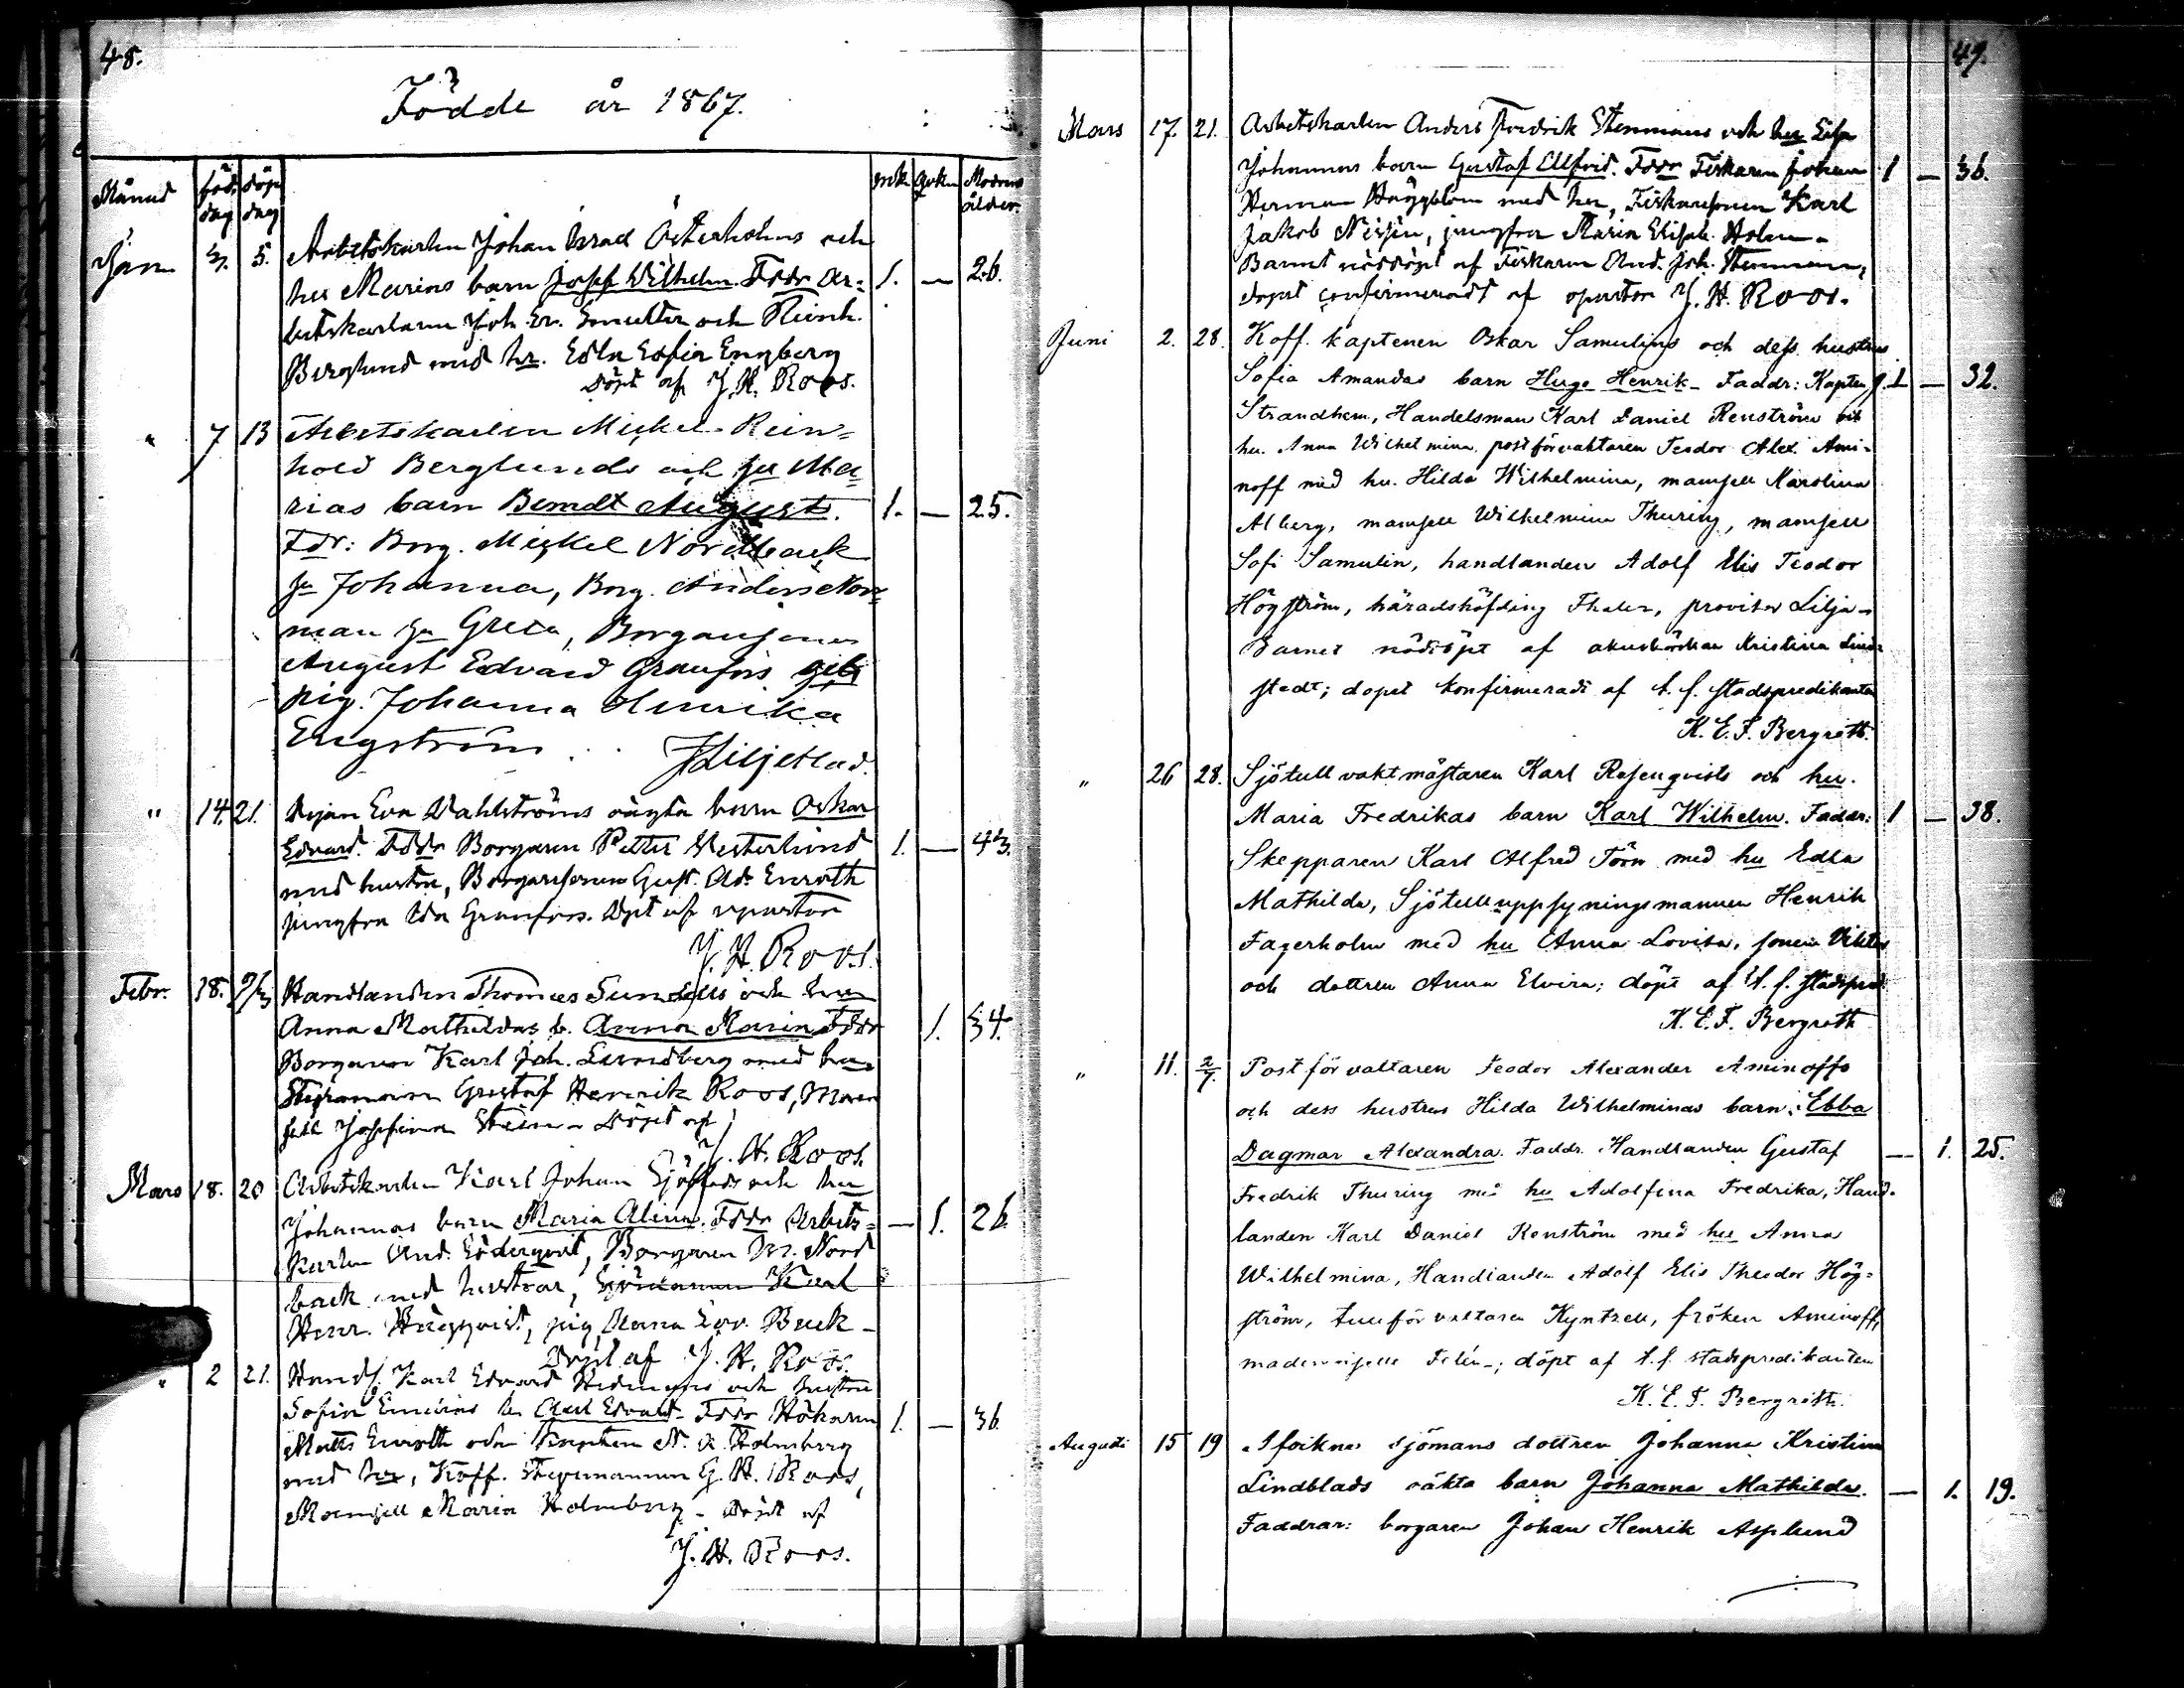 48.
Födde år 1867.
Månad föd. dag döp. dag mk. qvk. Modrens ålder.
Jan. 3. 5. Arbetskarlen Johan Israel Österholms och
hu Marias barn Josef Wilhelm. Fddr Ar= 1. — 26.
betskarlarne Joh. Er. Smulter och Reinh.
Berglund med hr. Edla Sofia Engberg
Döpt af J. H. Roos.
" 7 13 Arbetskarlen Mickel Rein=
hold Berglunds och hu Ma=
rias barn Berndt August. 1. — 25.
Fdr: Borg. Mickel Nordback
hu Johanna, Borg. Anders Nor=
man hu Greta, Borgaresonen
August Edvard Granfors
pig. Johanna Henrika
Engström . . J Liljeblad.
" 14. 21. Pigan Eva Dahlströms oägta barn Oskar
Edvard. Fddr Borgaren Petter Westerlund 1. — 43.
med hustru, Borgaresonen Gust. Ad. Enroth
jungfru Ida Granfors. Döpt af vpastor
J. H. Roos.
Febr. 18. Handlanden Thomas Sundells och hu
Anna Mathildas b. Anna Maria Fddr 1. 34.
Borgaren Karl Joh. Lundberg med hu
Styrmannen Gustaf Henrik Roos, Mam
sell Josefina Döpt af
J. H. Roos.
Mars 18. 20 Arbetskarlen Karl Johan och hu
Johannas barn Maria Alina. Fddr Arbets= — 1. 26.
karlen And. Söderqvist, Borgaren M. Nord
back med hustrur, Karl
Henr. Häggqvist, pig. Anna Lov. Back -
Döpt af J. H. Roos.
" 2 21. Handl. Karl Edvard och hustru
Sofia b. Axel Edvald - Fddr Hökaren 1. — 36.
Matts Enroth och Kapten N. A. Holmberg
med hu, Koff. Styrmannen G. H. Roos,
Mamsell Maria Holmberg - Döpt af
J. H. Roos.
49.
Mars 17. 21. Arbetskarlen Anders Fredrik Stenmans och hu
Johannas barn Gustaf Elfrid. Fddr Fiskaren Johan 1 — 36.
Herman Häggblom med hu, Fiskaresonen Karl
Jakob jungfru Maria Elisab. Holm -
Barnet nöddöpt af Fiskaren And. Joh. Stenman,
dopet confirmeradt af vpastor J. H. Roos.
Juni 2. 28. Koff. kaptenen Oskar Samulins och dess hustrus
Sofia Amandas barn Hugo Henrik - Faddr: Kapten J. 1 — 32.
Strandhem, Handelsman Karl Daniel Renström och
hu. Anna Wilhelmina, postförvaltaren Feodor Alex. Ami-
noff med hu. Hilda Wilhelmina, mamsell Karolina
Alberg, mamsell Wilhelmina Thuring, mamsell
Sofi Samulin, handlanden Adolf Elis Teodor
Högström, häradshöfding Thalen, provisor Lilja -
Barnet nöddöpt af ackuskörskan Kristina Lind=
stedt; dopet konfirmeradt af t. f. stadspredikanten
K. E. F. Bergroth.
" 26 28. Sjötullvaktmästaren Karl Rosenqvists och hu.
Maria Fredrikas barn Karl Wilhelm. Faddr: 1 — 38.
Skepparen Karl Alfred Törn med hu Edla
Mathilda, Sjötulluppsyningsmannen Henrik
Fagerholm med hu Anna Lovisa, sonen Viktor
och dottren Anna Elvira; döpt af t. f. stadspred.
K. E. F. Bergroth
" 11. 2/7. Postförvaltaren Feodor Alexander Aminoffs
och dess hustrus Hilda Wilhelminas barn: Ebba
Dagmar Alexandra. Faddr. Handlanden Gustaf — 1. 25.
Fredrik Thuring med hu Adolfina Fredrika, Hand-
landen Karl Daniel Renström med hu Anna
Wilhelmina, Handlanden Adolf Elis Theodor Hög=
ström, tullförvaltaren Kyntzell, fröken Aminoff,
mademoiselle Felén -; döpt af t. f. stadspredikanten
K. E. F. Bergroth.
Augusti 15 19 Afsidkne sjömans dottren Johanna Kristina
Lindblads oäkta barn Johanna Mathilda. — 1. 19.
Faddrar: borgaren Johan Henrik Asplund